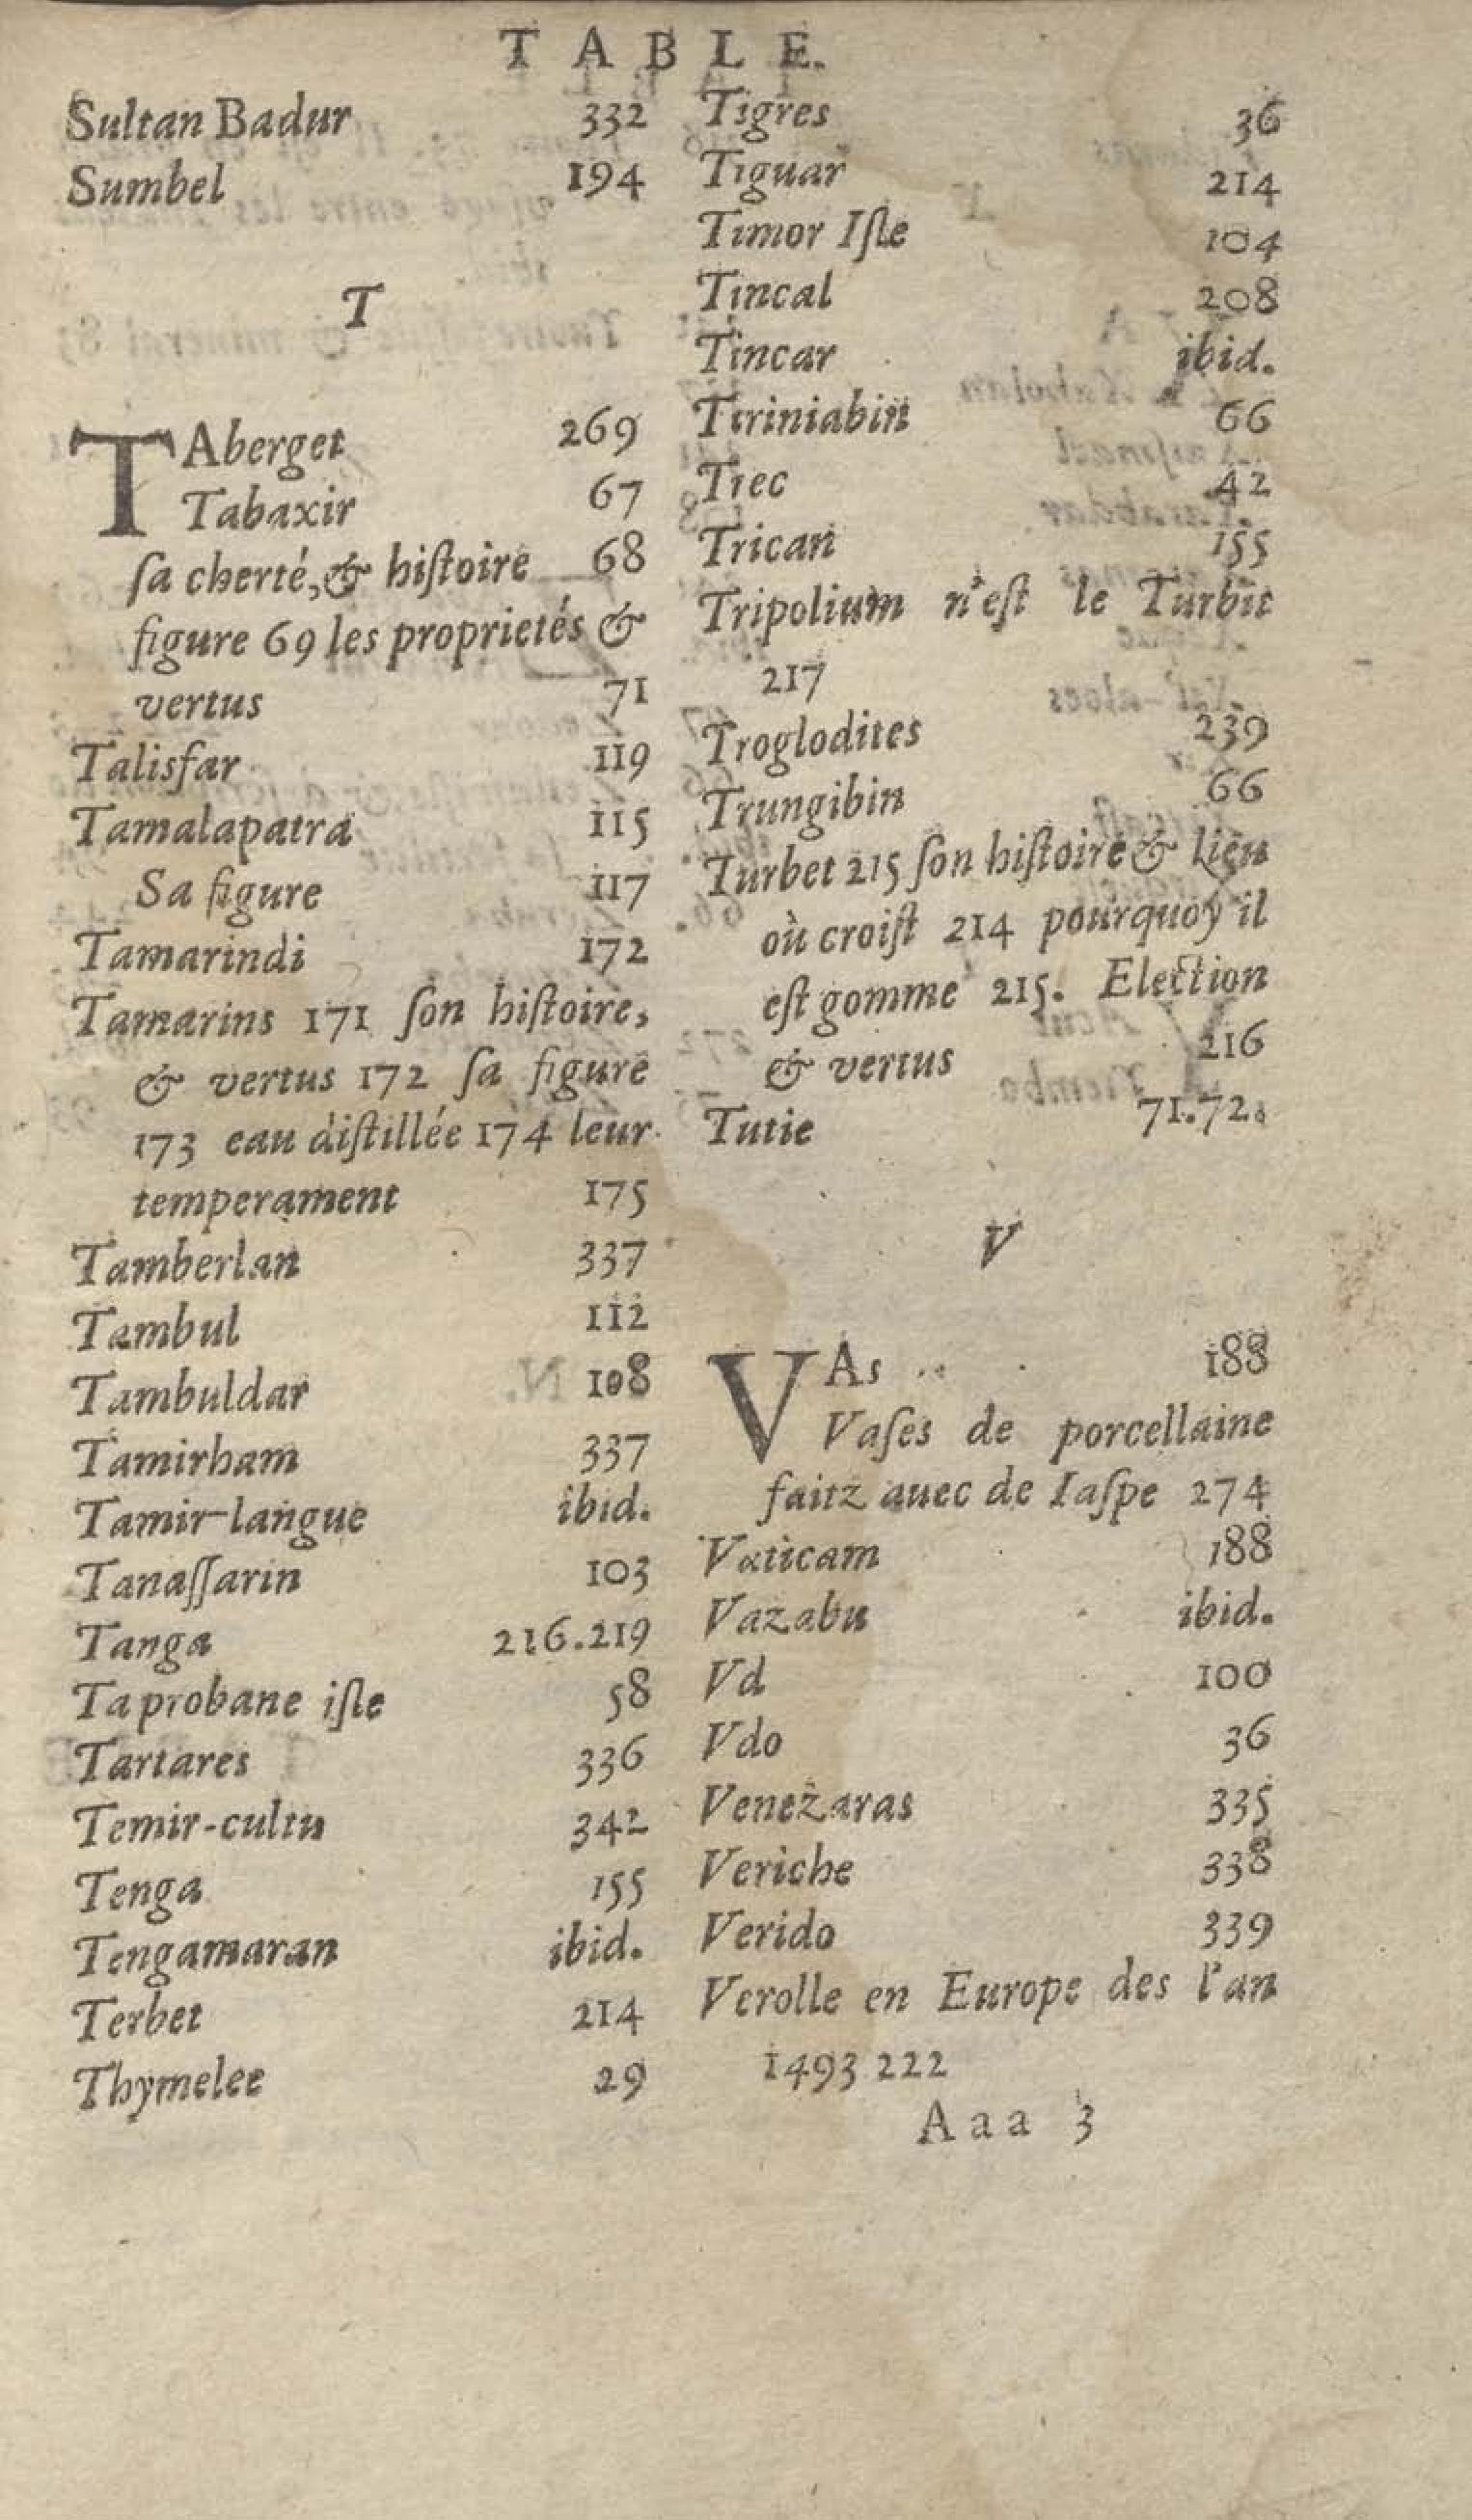 TABLE.
Sultan Badur 332
Sumbel 194
T
TAberget 269
Tabaxir 67
ſa cherté, & hiſtoire 68
figure 69 les proprietés &
vertus 71
Talisfar 119
Tamalapatra 115
Sa figure 117
Tamarindi 172
Tamarins 171 ſon hiſtoire,
& vertus 172 ſa figure
173 eau diſtillée 174 leur
temperament 175
Tamberlan 337
Tambul 112
Tambuldar 108
Tamirham 337
Tamir-langue ibid.
Tanaſſarin 103
Tanga 216.219
Taprobane iſle 58
Tartares 336
Temir-cultu 342
Tenga 155
Tengamaran ibid.
Terbet 214
Thymelee 29
Tigres 36
Tiguar 214
Timor Iſle 104
Tincal 208
Tincar ibid.
Tiriniabin 66
Trec 42
Trican 155
Tripolium n'eſt le Turbit
217
Troglodites 239
Trungibin 66
Turbet 215 ſon hiſtoire & lieu
où croiſt 214 pourquoy il
eſt gomme 215. Election
& vertus 216
Tutie 71.72.
V
VAs 188
Vaſes de porcellaine
faitz auec de Iaſpe 274
Vaticam 188
Vazabu ibid.
Vd 100
Vdo 36
Venezaras 335
Veriche 338
Verido 339
Verolle en Europe des l'an
1493 222
Aaa 3